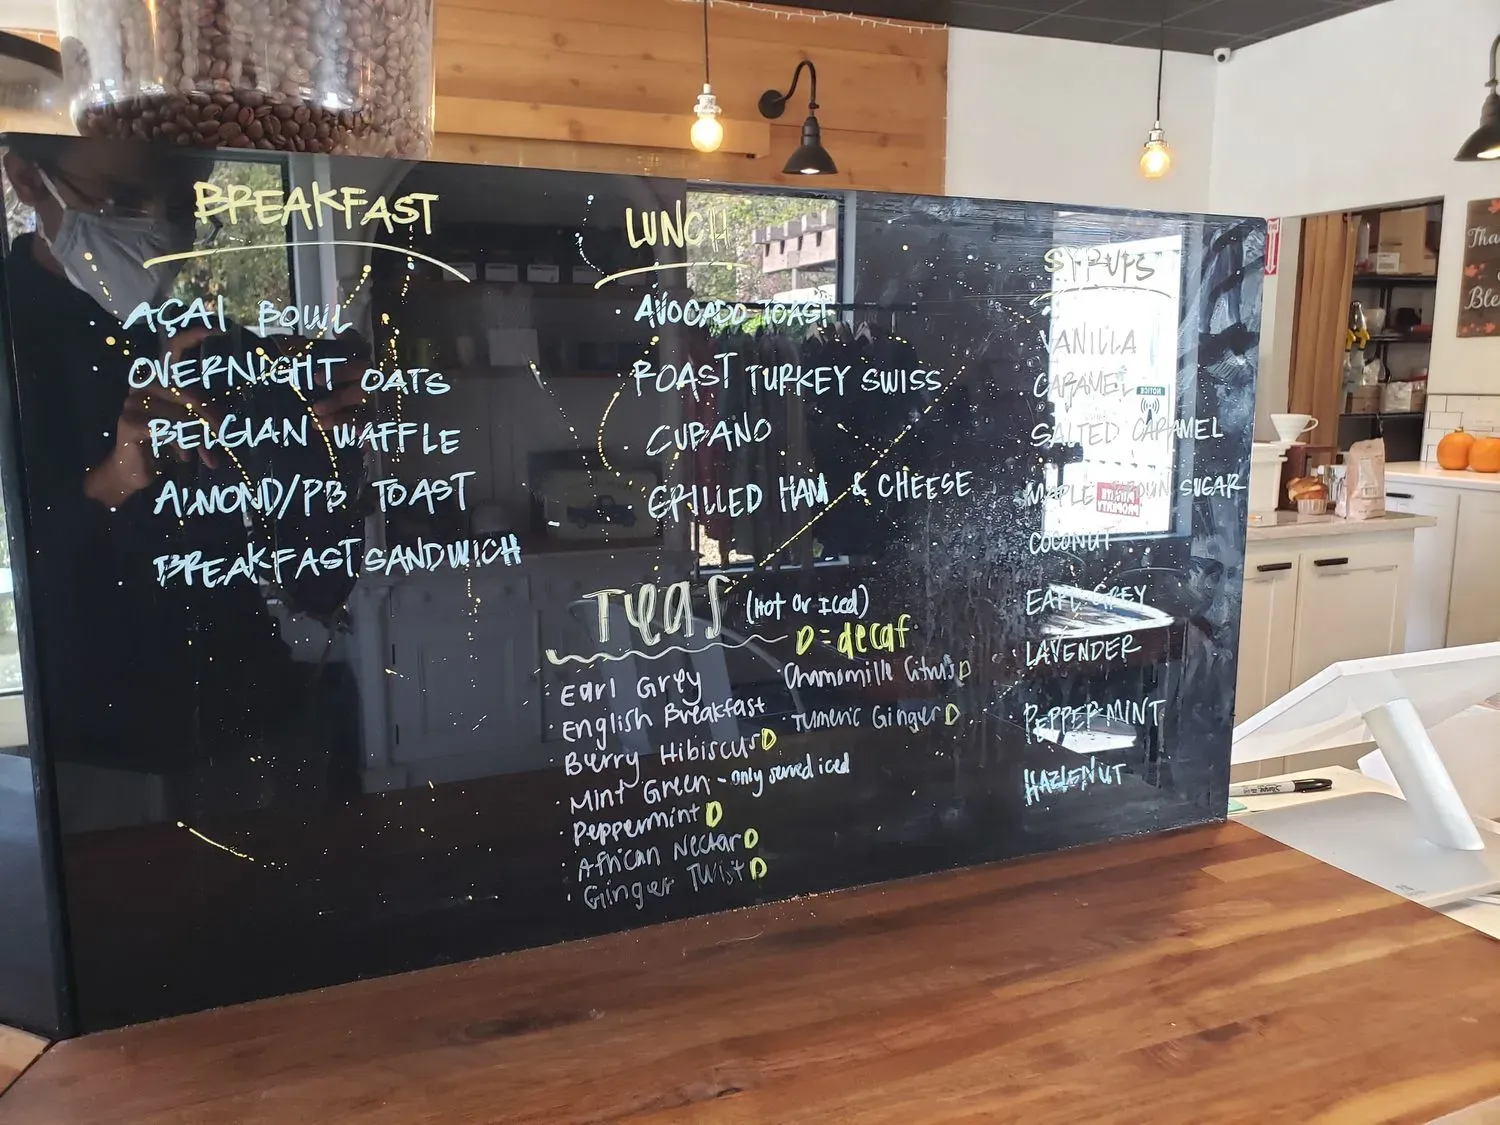 BREAKFAST
AÇAI BOWL
OVERNIGHT OATS
BELGIAN WAFFLE
ALMOND/PB TOAST
BREAKFAST SANDWICH
LUNCH
AVOCADO TOAST
ROAST TURKEY SWISS
CUBANO
GRILLED HAM & CHEESE
TEAS (HOT OR ICED)
D = decaf
Earl Grey
English Breakfast
Berry Hibiscus D
Mint Green - only served iced
Peppermint D
African Nectar D
Ginger Twist D
Chamomille Citrus D
Tumeric Ginger D
SYRUPS
VANILLA
CARAMEL
SALTED CARAMEL
MAPLE BROWN SUGAR
COCONUT
EARL GREY
LAVENDER
PEPPERMINT
HAZELNUT
NOTICE
Sharpie